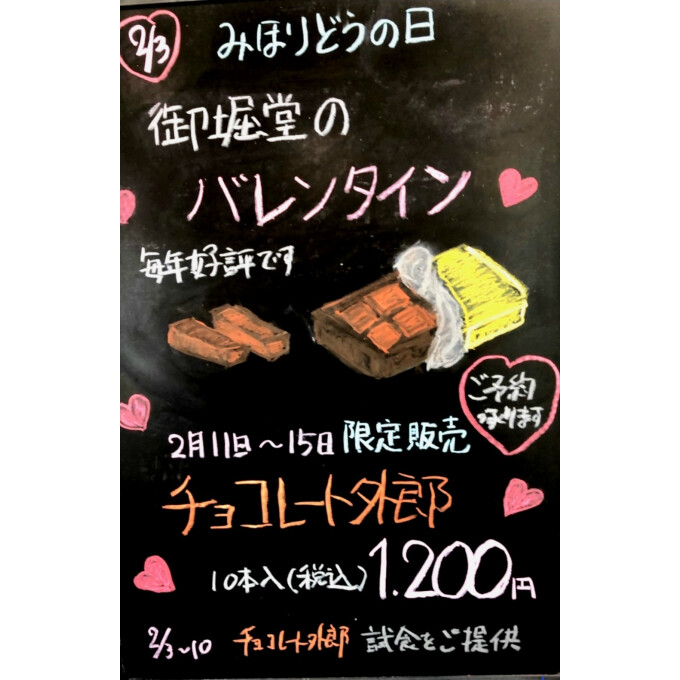 2/3 みほりどうの日
御堀堂の
バレンタイン
毎年好評です
ご予約
承ります
2月11日～15日 限定販売
チョコレート外郎
10本入(税込)1.200円
2/3~10 チョコレート外郎 試食をご提供